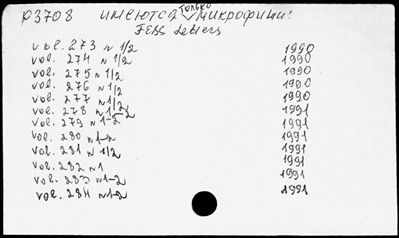 р3708 имеются только микрофиши!
FEBS Letters
vol. 273 N 1/2 1990
vol. 274 N 1/2 1990
vol. 275 N 1/2 1990
vol. 276 N 1/2 1990
vol. 277 N 1/2 1990
vol. 278 N 1/2 1991
vol. 279 N 1-2 1991
vol. 280 N 1-2 1991
vol. 281 N 1/2 1991
vol. 282 N 1 1991
vol. 283 N 1-2 1991
vol. 284 N 1-2 1991